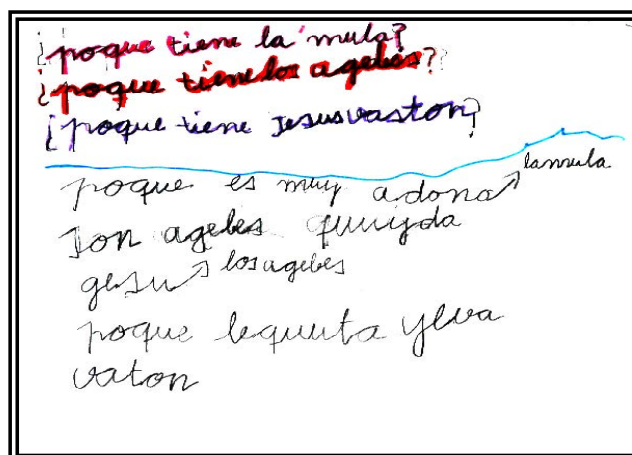 ¿poque tiene la mula?
¿poque tiene los agebes?
¿poque tiene Jesus vaston?
poque es muy adona la mula
son agebes quuiyda
gesu los agebes
poque lequuta yleva
vaton